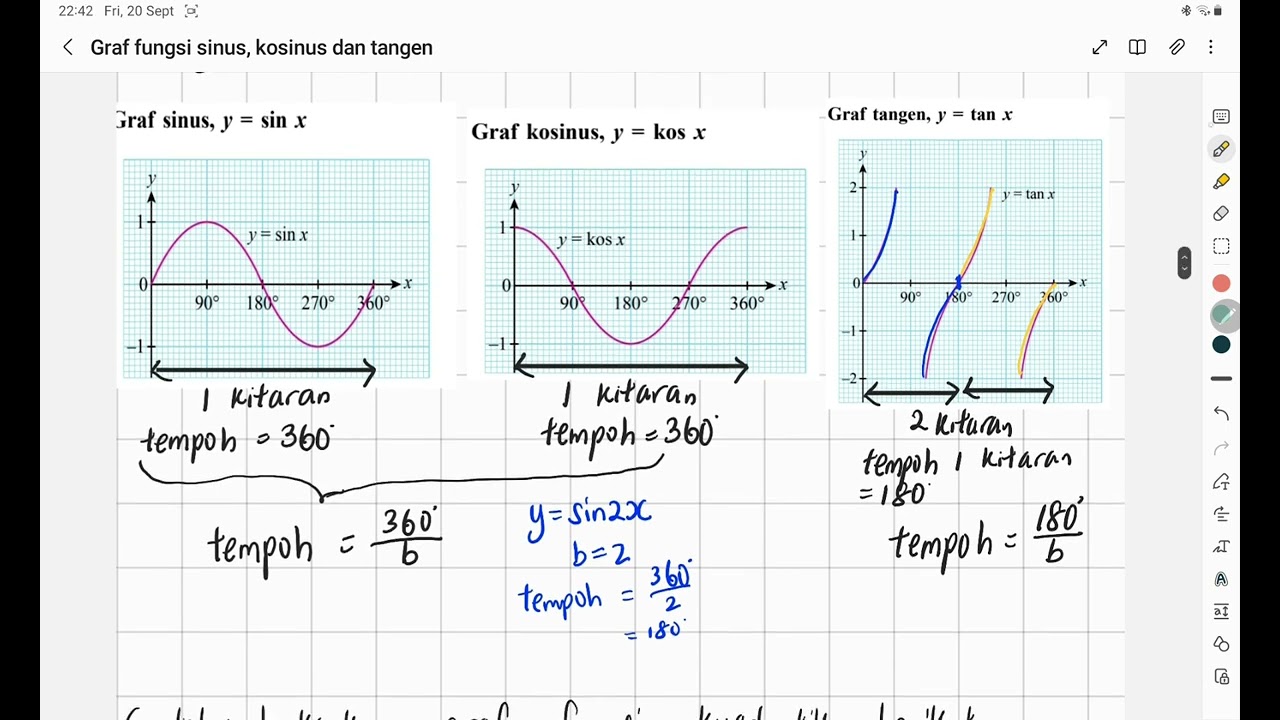 22:42 Fri, 20 Sept
Graf fungsi sinus, kosinus dan tangen
Graf sinus, y = sin x
y
1
y = sin x
0
90° 180° 270° 360° x
−1
1 kitaran
tempoh = 360°
Graf kosinus, y = kos x
y
1
y = kos x
0
x
90° 180° 270° 360°
−1
1 kitaran
tempoh = 360°
Graf tangen, y = tan x
y
2
y = tan x
1
0
x
90° 180° 270° 360°
−1
−2
2 kitaran
tempoh 1 kitaran
= 180°
tempoh = 360°/b
y = sin2x
b = 2
tempoh = 360°/2
= 180°
tempoh = 180°/b